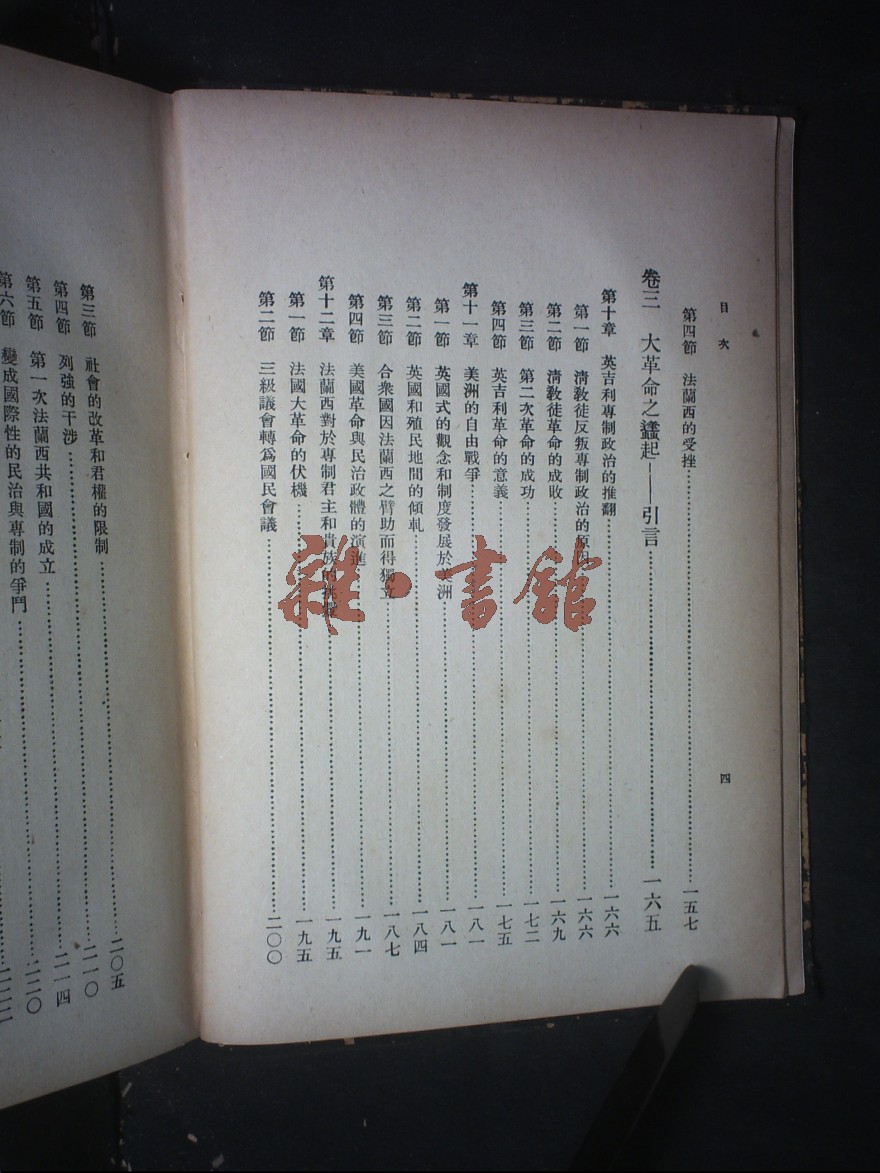 目次
四
第四節 法蘭西的受挫……一五七
卷三 大革命之蠭起——引言……一六五
第十章 英吉利專制政治的推翻……一六六
第一節 淸敎徒反叛專制政治的原因……一六六
第二節 淸敎徒革命的成敗……一六九
第三節 第二次革命的成功……一七二
第四節 英吉利革命的意義……一七五
第十一章 美洲的自由戰爭……一八一
第一節 英國式的觀念和制度發展於美洲……一八一
第二節 英國和殖民地間的傾軋……一八四
第三節 合衆國因法蘭西之臂助而得獨立……一八七
第四節 美國革命與民治政體的演進……一九一
第十二章 法蘭西對於專制君主和貴族的……一九五
第一節 法國大革命的伏機……一九五
第二節 三級議會轉爲國民會議……二〇〇
第三節 社會的改革和君權的限制……二〇五
第四節 列強的干涉……二一〇
第五節 第一次法蘭西共和國的成立……二一四
第六節 變成國際性的民治與專制的爭鬥……二二〇
二二二
雜·書館